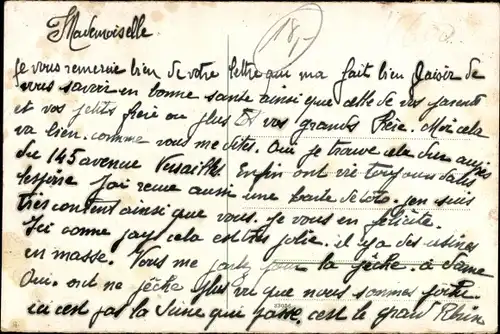 18,-
Mademoiselle.
Je vous remercie bien de votre lettre qui ma fait bien plaisir de
vous savoir en bonne santé ainsi que celle de vos parents
et vos petits frère ou plus tot vos grands Frère. Moi cela
va bien. comme vous me dites. Oui je trouve cela dur auprès
du 145 avenue Versailles. Enfin ont vie toujours dans
lespoire j'ai reçue aussi une carte de toto. jen suis
très content ainsi que vous. je vous en félicite.
Ici comme pays cela est très jolie. il y a des usines
en masse. Vous me parlez pour la pêche. à Jame
Oui. ont ne pêche plus vu que nous sommes partie
ici est pas la Seine qui passe. c'est le grand Rhin